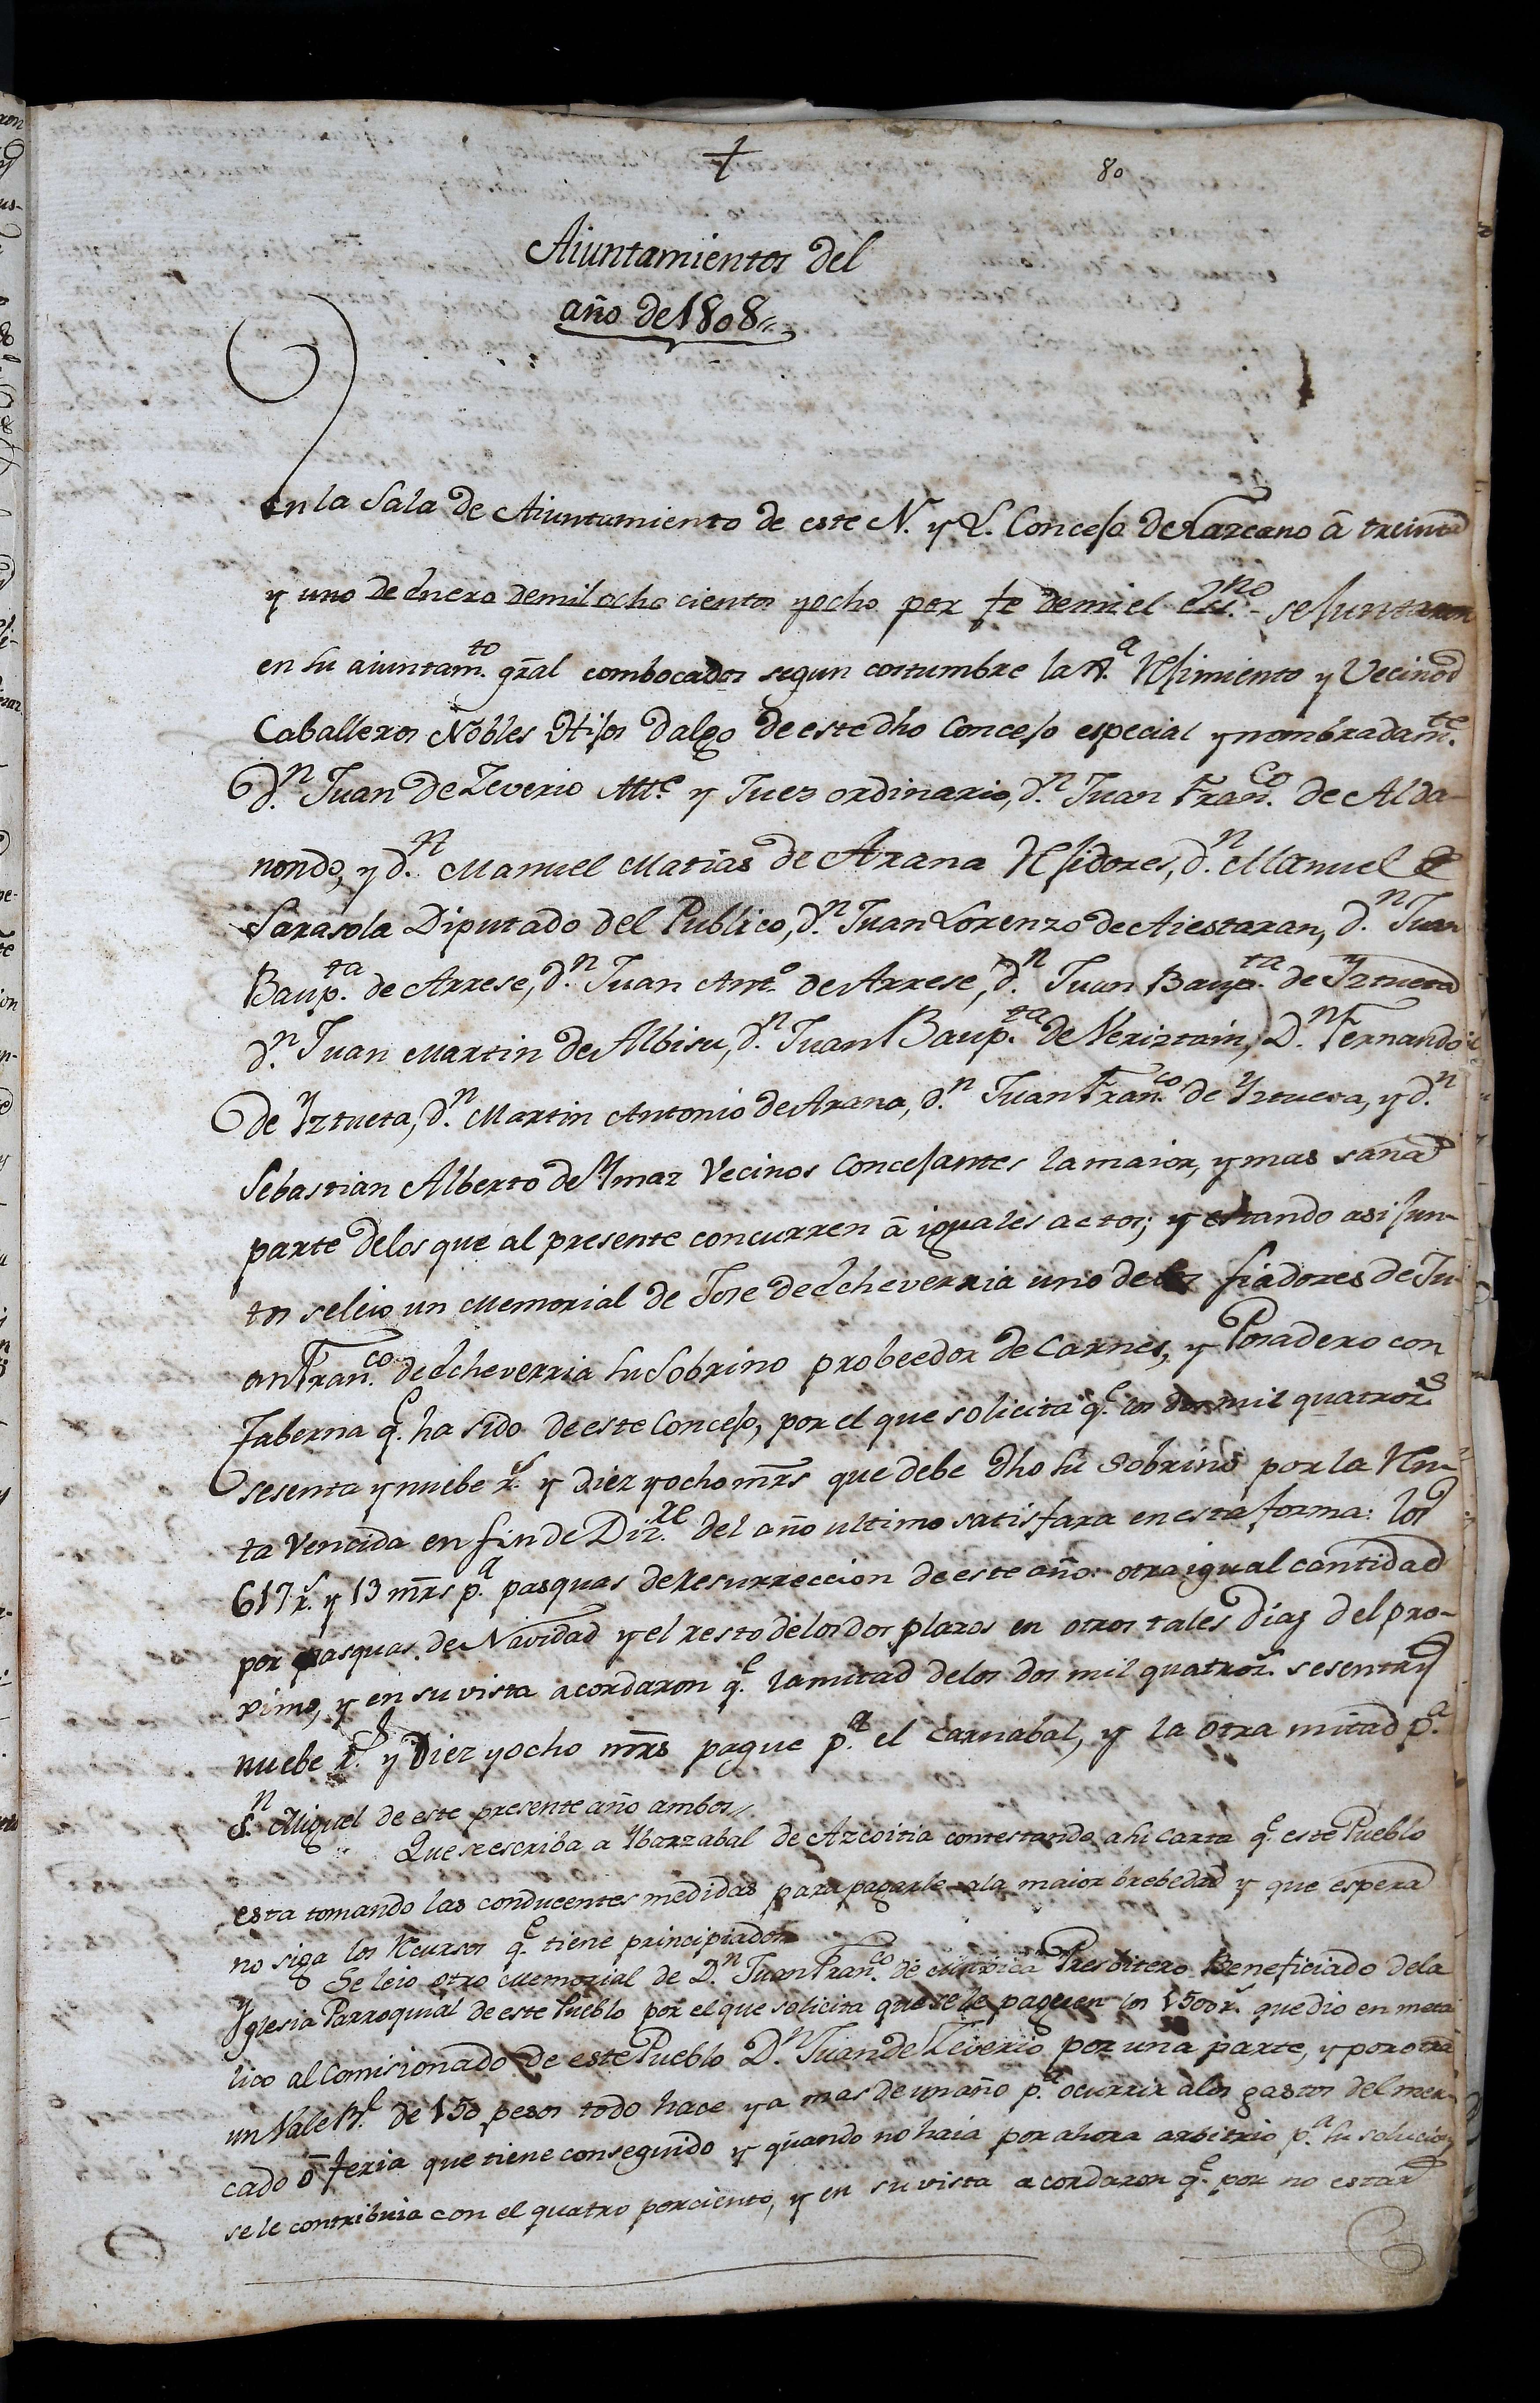 80
Aiuntamientos del
año de 1808
En la Sala de Aiuntamiento de este N. y L. Concejo de Lazcano â treinta
y uno de Enero de mil ocho cientos y ocho por fe de mi el Ess.no se juntaron
en su aiuntam.to gr̃al combocados segun costumbre la Jª Rejimiento y Vecinos
Caballeros Nobles Hijos dalgo de este dho Concejo especial y nombradam.te
d.n Juan de Zeverio Alle y Juez ordinario, d.n Juan Fran.co de Alda-
nondo, y d.n Manuel Matias de Arana Rejidores, d.n Manuel de
Sarasola Diputado del Publico, d.n Juan Lorenzo de Aiestaran, d.n Juan
Baup.ta de Arrese, d.n Juan Ant.o de Arrese, d.n Juan Baup.ta de Yztueta
d.n Juan Martin de Albisu, d.n Juan Baup.ta de Neriztain, D.n Fernando
de Yztueta, d.n Martin Antonio de Arana, d.n Juan Fran.co de Yztueta, y d.n
Sebastian Alberto de Ymaz Vecinos Concejantes la maior, y mas sana
parte de los que al presente concurren â iguales actos; y estando asi jun-
tos se leio un Memorial de Jose de Echeverria uno de los fiadores de Ju-
an Fran.co de Echeverria su Sobrino probeedor de Carnes, y Posadero con
Taberna q.e ha sido de este Concejo, por el que solicita q.e los dos mil quatros.s
sesenta y nuebe r.s y diez y ocho mrs que debe dho su Sobrino por la Ren-
ta Vencida en fin de Diz.re del año ultimo satisfara en esta forma: los
617 r.s y 13 mrs p.a pasquas de Resurreccion de este año: otra igual cantidad
por pasquas de Navidad y el resto de los dos plazos en otros tales dias del pro-
ximo, y en su vista acordaron q.e la mitad de los dos mil quatros. sesenta y
nuebe r.s y Diez y ocho mrs pague p.a el Carnabal, y la otra mitad p.a
S.n Miguel de este presente año ambos
Que se escriba a Ybarzabal de Azcoitia contestando a su carta q.e este Pueblo
esta tomando las conducentes medidas para pagarle a la maior brebedad y que espera
no siga los Recursos q.e tiene principiados
Se leio otro Memorial de D.n Juan Fran.co de Presbitero Beneficiado de la
Yglesia Parroquial de este Pueblo por el que solicita que se le paguen los 1500 r.s que dio en meta
lico al Comisionado de este Pueblo D.n Juan de Zeverio por una parte, y por otra
un Vale R.l de 150 pesos todo hace ya mas de un año p.a ocurrir a los gastos del mer-
cado ô feria que tiene conseguido y quando no haia por ahora arbitrio p.a su solucion
se le contribuia con el quatro por ciento, y en su vista acordaron q.e por no estar